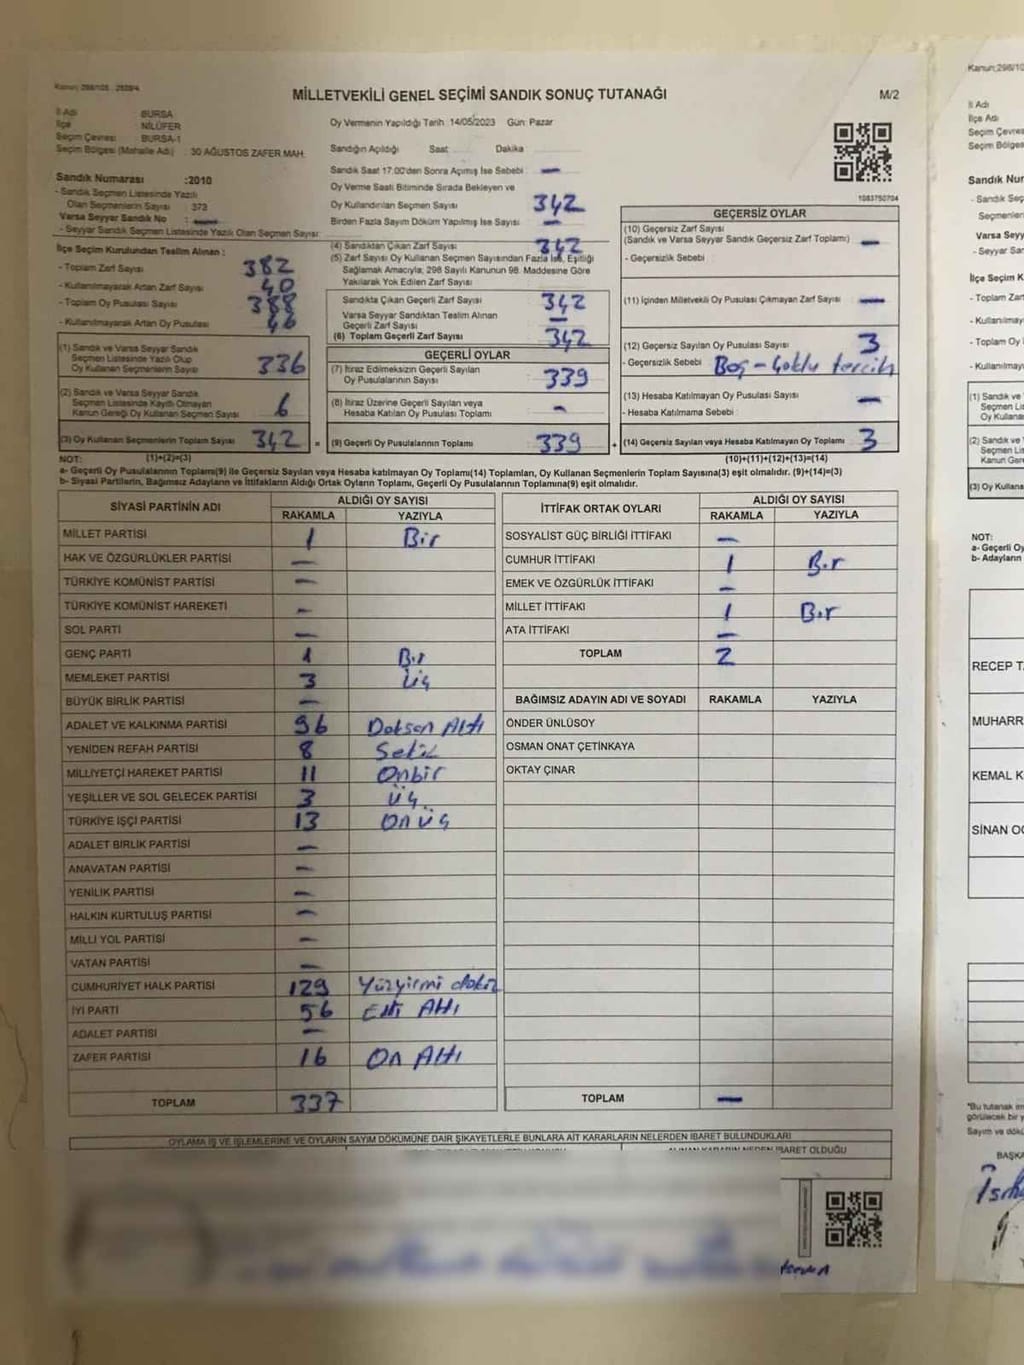 Kanun: 298/105
MİLLETVEKİLİ GENEL SEÇİMİ SANDIK SONUÇ TUTANAĞI
M/2
İl Adı : BURSA
İlçe : NİLÜFER
Seçim Çevresi : BURSA-1
Seçim Bölgesi (Mahalle Adı) : 30 AĞUSTOS ZAFER MAH.
Sandık Numarası :2010
- Sandık Seçmen Listesinde Yazılı
Olan Seçmenlerin Sayısı : 373
Varsa Seyyar Sandık No : —
- Seyyar Sandık Seçmen Listesinde Yazılı Olan Seçmen Sayısı:
İlçe Seçim Kurulundan Teslim Alınan :
- Toplam Zarf Sayısı 382
- Kullanılmayarak Artan Zarf Sayısı 40
- Toplam Oy Pusulası Sayısı 388
- Kullanılmayarak Artan Oy Pusulası 46
(1) Sandık ve Varsa Seyyar Sandık
Seçmen Listesinde Yazılı Olup
Oy Kullanan Seçmenlerin Sayısı 336
(2) Sandık ve Varsa Seyyar Sandık
Seçmen Listesinde Kayıtlı Olmayan
Kanun Gereği Oy Kullanan Seçmen Sayısı 6
(3) Oy Kullanan Seçmenlerin Toplam Sayısı 342 =
Oy Vermenin Yapıldığı Tarih :14/05/2023 Gün: Pazar
Sandığın Açıldığı Saat Dakika
Sandık Saat 17.00'den Sonra Açılmış İse Sebebi : —
Oy Verme Saati Bitiminde Sırada Bekleyen ve
Oy Kullandırılan Seçmen Sayısı 342
Birden Fazla Sayım Döküm Yapılmış İse Sayısı —
(4) Sandıktan Çıkan Zarf Sayısı 342
(5) Zarf Sayısı Oy Kullanan Seçmen Sayısından Fazla İse, Eşitliği
Sağlamak Amacıyla; 298 Sayılı Kanunun 98. Maddesine Göre
Yakılarak Yok Edilen Zarf Sayısı
Sandıkta Çıkan Geçerli Zarf Sayısı 342
Varsa Seyyar Sandıktan Teslim Alınan
Geçerli Zarf Sayısı —
(6) Toplam Geçerli Zarf Sayısı 342
GEÇERLİ OYLAR
(7) İtiraz Edilmeksizin Geçerli Sayılan
Oy Pusulalarının Sayısı 339
(8) İtiraz Üzerine Geçerli Sayılan veya
Hesaba Katılan Oy Pusulası Toplamı -
(9) Geçerli Oy Pusulalarının Toplamı 339 +
1083750704
GEÇERSİZ OYLAR
(10) Geçersiz Zarf Sayısı
(Sandık ve Varsa Seyyar Sandık Geçersiz Zarf Toplamı) —
- Geçersizlik Sebebi
(11) İçinden Milletvekili Oy Pusulası Çıkmayan Zarf Sayısı —
(12) Geçersiz Sayılan Oy Pusulası Sayısı 3
- Geçersizlik Sebebi Boş - Çoklu tercih
(13) Hesaba Katılmayan Oy Pusulası Sayısı —
- Hesaba Katılmama Sebebi :
(14) Geçersiz Sayılan veya Hesaba Katılmayan Oy Toplamı 3
NOT: (1)+(2)=(3) (10)+(11)+(12)+(13)=(14)
a- Geçerli Oy Pusulalarının Toplamı(9) ile Geçersiz Sayılan veya Hesaba katılmayan Oy Toplamı(14) Toplamları, Oy Kullanan Seçmenlerin Toplam Sayısına(3) eşit olmalıdır. (9)+(14)=(3)
b- Siyasi Partilerin, Bağımsız Adayların ve İttifakların Aldığı Ortak Oyların Toplamı, Geçerli Oy Pusulalarının Toplamına(9) eşit olmalıdır.
SİYASİ PARTİNİN ADI ALDIĞI OY SAYISI
RAKAMLA YAZIYLA
MİLLET PARTİSİ 1 Bir
HAK VE ÖZGÜRLÜKLER PARTİSİ —
TÜRKİYE KOMÜNİST PARTİSİ —
TÜRKİYE KOMÜNİST HAREKETİ —
SOL PARTİ —
GENÇ PARTİ 1 Bir
MEMLEKET PARTİSİ 3 Üç
BÜYÜK BİRLİK PARTİSİ —
ADALET VE KALKINMA PARTİSİ 96 Doksan Altı
YENİDEN REFAH PARTİSİ 8 Sekiz
MİLLİYETÇİ HAREKET PARTİSİ 11 Onbir
YEŞİLLER VE SOL GELECEK PARTİSİ 3 Üç
TÜRKİYE İŞÇİ PARTİSİ 13 Onüç
ADALET BİRLİK PARTİSİ —
ANAVATAN PARTİSİ —
YENİLİK PARTİSİ —
HALKIN KURTULUŞ PARTİSİ —
MİLLİ YOL PARTİSİ —
VATAN PARTİSİ —
CUMHURİYET HALK PARTİSİ 129 Yüzyirmi dokuz
İYİ PARTİ 56 Elli Altı
ADALET PARTİSİ —
ZAFER PARTİSİ 16 On Altı
TOPLAM 337
İTTİFAK ORTAK OYLARI ALDIĞI OY SAYISI
RAKAMLA YAZIYLA
SOSYALİST GÜÇ BİRLİĞİ İTTİFAKI —
CUMHUR İTTİFAKI 1 Bir
EMEK VE ÖZGÜRLÜK İTTİFAKI —
MİLLET İTTİFAKI 1 Bir
ATA İTTİFAKI —
TOPLAM 2
BAĞIMSIZ ADAYIN ADI VE SOYADI RAKAMLA YAZIYLA
ÖNDER ÜNLÜSOY
OSMAN ONAT ÇETİNKAYA
OKTAY ÇINAR
TOPLAM —
OYLAMA İŞ VE İŞLEMLERİNE VE OYLARIN SAYIM DÖKÜMÜNE DAİR ŞİKAYETLERLE BUNLARA AİT KARARLARIN NELERDEN İBARET BULUNDUKLARI
ALINAN KARARIN NEDEN İBARET OLDUĞU
Kanun:298/10
İl Adı
İlçe Adı
Seçim Çevresi
Seçim Bölges
Sandık Nur
- Sandık Seç
Seçmenler
Varsa Seyy
- Seyyar San
İlçe Seçim K
- Toplam Zarf
- Kullanılmay
- Toplam Oy
- Kullanılmay
(1) Sandık ve
Seçmen Lis
Oy Kullana
(2) Sandık ve
Seçmen Lis
Kanun Gere
(3) Oy Kullana
NOT:
a- Geçerli Oy
b- Adayların
RECEP T
MUHARR
KEMAL K
SİNAN O
*Bu tutanak
görülecek bir y
Sayım ve dökü
BAŞKA